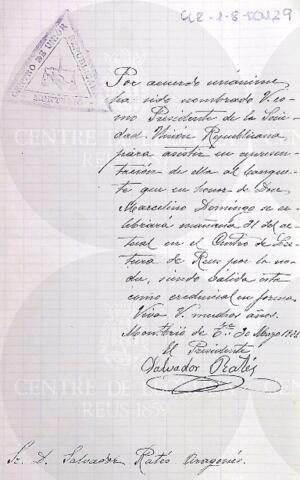 CENTRO DE UNION REPUBLICANA
MONTBRIÓ
Por acuerdo unanime
ha sido nombrado V. co-
mo Presidente de la Socie-
dad Unión Republicana,
para asistir en represen-
tación de ella al banque-
te que en honor de Don
Marcelino Domingo se ce-
lebrará mañana 21 del ac-
tual en el Centro de Lec-
tura de Reus por la no-
che, siendo válida esta
como credencial en forma.
Viva V. muchos años.
Montbrió de 20 Marzo
El Presidente
Salvador Ratés
CENTRE DE
REUS 1859
Sr. D. Salvador Ratés Aragonés.